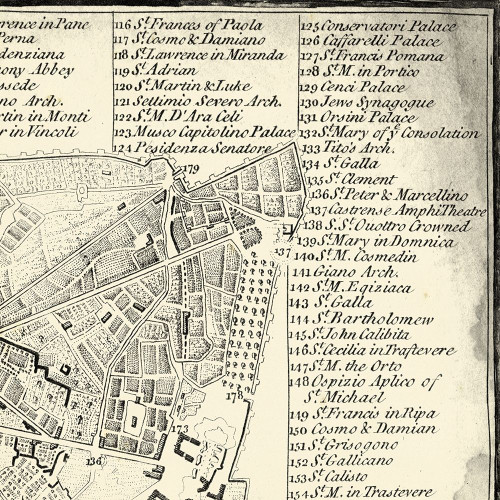 rence in Pane
Perna
denziana
ony Abbey
ssede
no Arch.
rtin in Monti
r in Vincoli
116 S.t Frances of Paola
117 S.t Cosmo & Damiano
118 S.t Lawrence in Miranda
119 S.t Adrian
120 S.t Martin & Luke
121 Settimio Severo Arch.
122 S.t M. D'Ara Celi
123 Musco Capitolino Palace
124 Pesidenza Senatore
125 Conservatori Palace
126 Caffarelli Palace
127 S.t Francis Pomana
128 S.t M. in Portico
129 Cenci Palace
130 Jews Synagogue
131 Orsini Palace
132 S.t Mary of ye Consolation
133 Tito's Arch.
134 S.t Galla
135 S.t Clement
136 S.t Peter & Marcellino
137 Castrense AmphiTheatre
138 S.S.t Quottro Crowned
139 S.t Mary in Domnica
140 S.t M. Cosmedin
141 Giano Arch.
142 S.t M. Egiziaca
143 S.t Galla
144 S.t Bartholomew
145 S.t John Calibita
146 S.t Cecilia in Trastevere
147 S.t M. the Orto
148 Ospizio Aplico of
S.t Michael
149 S.t Francis in Ripa
150 Cosmo & Damian
151 S.t Grisogono
152 S.t Gallicano
153 S.t Calisto
154 S.t M. in Trastevere
179
137
178
173
136